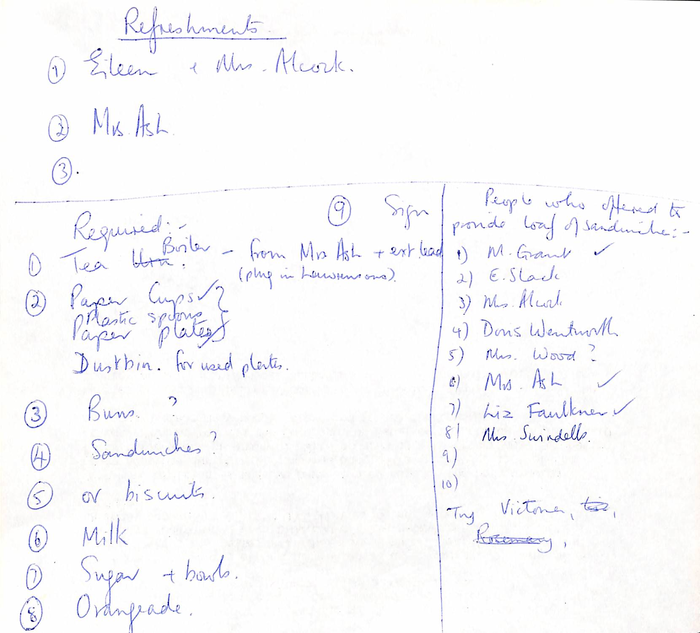 Refreshments
① Eileen + Mrs. Alcock.
② Mrs Ash
③.
Required:-
① Tea Urn Boiler - from Mrs Ash + ext lead
(plug in
② Paper Cups ✓
Plastic spoons
Paper plates ✓
Dustbin. for used plates.
③ Buns ?
④ Sandwiches ?
⑤ or biscuits.
⑥ Milk
⑦ Sugar + bowls.
⑧ Orangeade.
⑨ Sign
People who offered to
provide loaf of sandwiches:-
1) M. Grant ✓
2) E. Slack
3) Mrs. Alcock
4) Doris Wentworth
5) Mrs. Wood ?
6) Mrs. Ash ✓
7) Liz Faulkner ✓
8) Mrs. Swindells.
9)
10)
Try Victoria,
Rosemary,